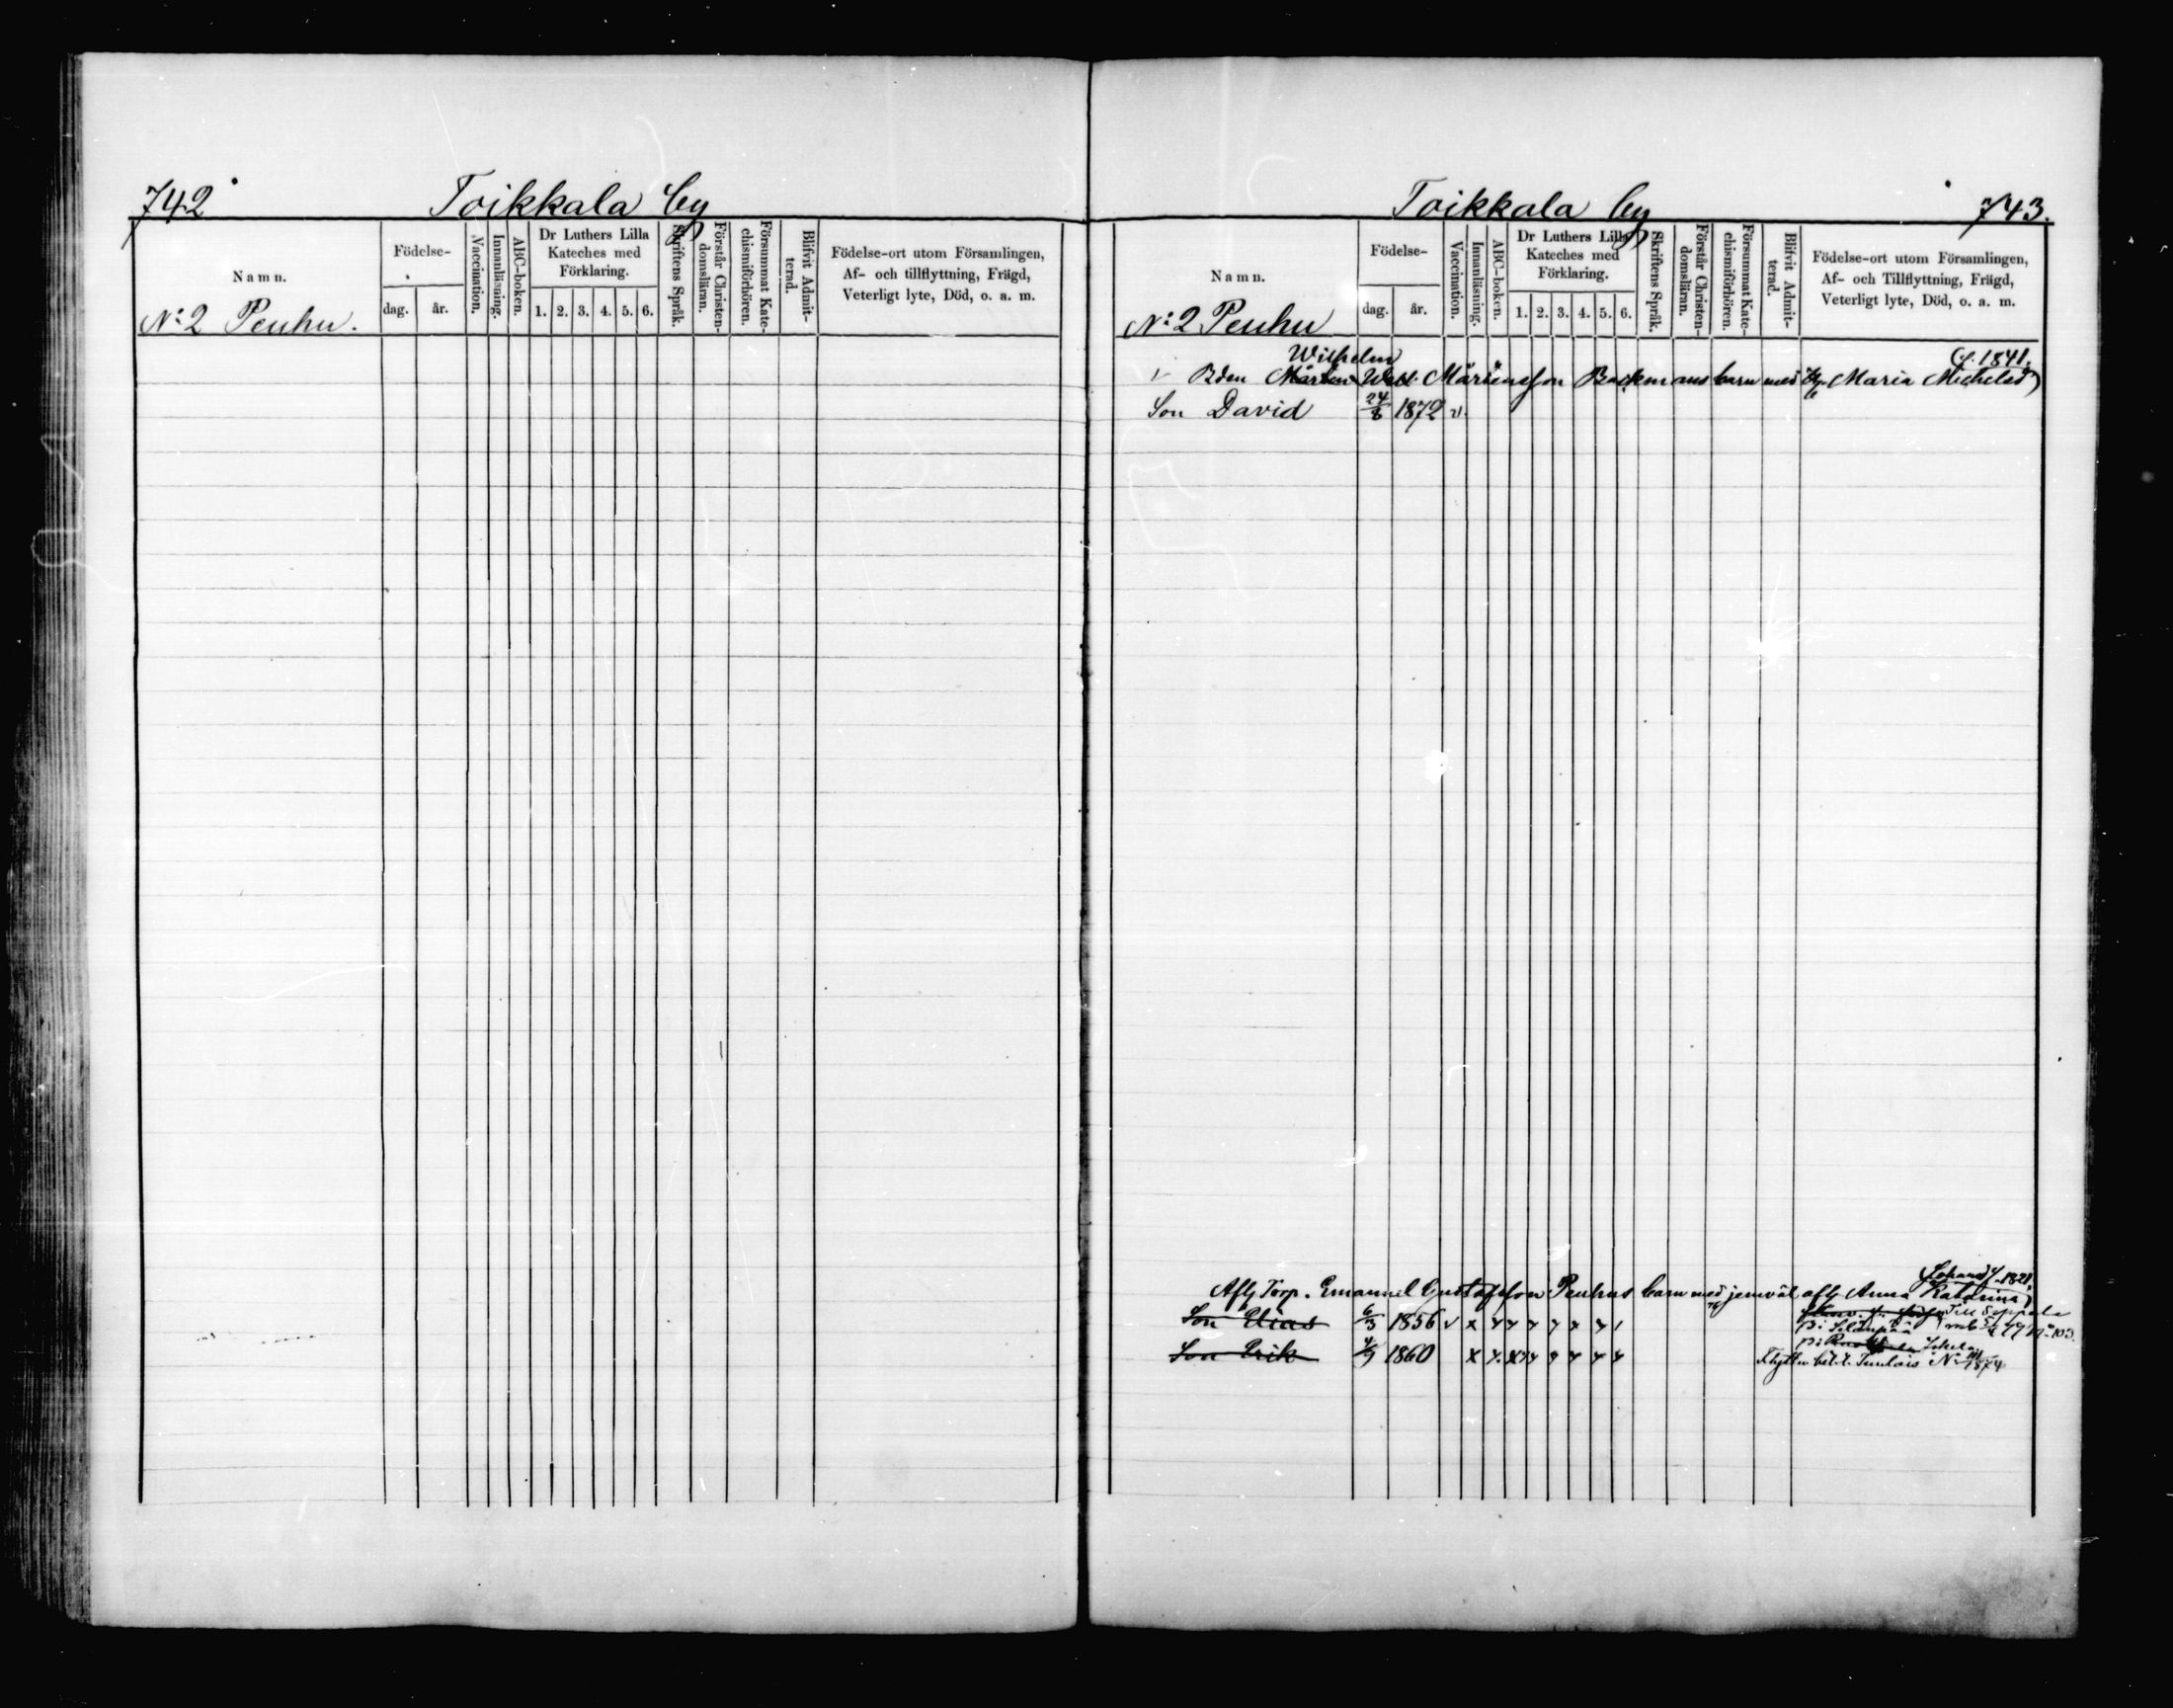 742
Toikkala by
Namn.
Födelse-
dag.
år.
Vaccination.
Innanläsning.
ABC-boken.
Dr Luthers Lilla
Kateches med
Förklaring.
1. 2. 3. 4. 5. 6.
Skriftens Språk.
Förstår Christen-
domsläran.
Försummat Kate-
chismiförhören.
Blifvit Admit-
terad.
Födelse-ort utom Församlingen,
Af- och tillflyttning, Frägd,
Veterligt lyte, Död, o. a. m.
No: 2 Penhu.
Toikkala by
743.
Namn.
Födelse-
dag.
år.
Vaccination.
Innanläsning.
ABC-boken.
Dr Luthers Lilla
Kateches med
Förklaring.
1. 2. 3. 4. 5. 6.
Skriftens Språk.
Förstår Christen-
domsläran.
Försummat Kate-
chismiförhören.
Blifvit Admit-
terad.
Födelse-ort utom Församlingen,
Af- och Tillflyttning, Frägd,
Veterligt lyte, Död, o. a. m.
No: 2 Penhu
Wilhelm f. 1841.
Bden Mårten Mårtensson Backmans barn med Maria Michelsd)
Son David 24/8 1872 v.
f. 1821.
Afl Torp. Emanuel Gustafsson Penhus barn med jemväl afl Anna Katarina)
Son Elias 6/3 1856 v x
Till Seppälä
Son Erik 4/9 1860 x
1874